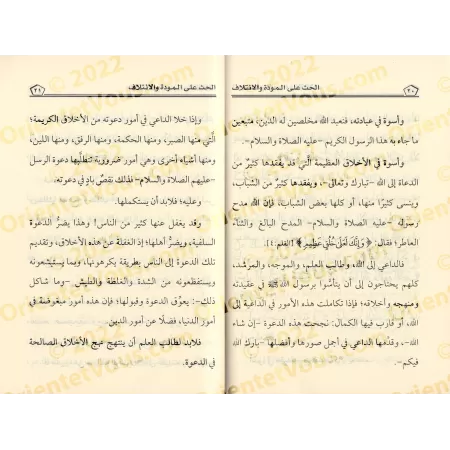 الحث على المودة والائتلاف
٢٠
وأسوة في عبادته، فنعبد الله مخلصين له الدين، متبعين
ما جاء به هذا الرسول الكريم -عليه الصلاة والسلام-.
وأسوة في الأخلاق العظيمة التي قد يفقدها كثيرٌ من
الدعاة إلى الله -تبارك وتعالى-، ويفقدها كثير من الشباب،
وينسى كثيرًا منها، أو كلها بعض الشباب، فإن الله مدح
رسوله -عليه الصلاة والسلام- المدح البالغ والثناء
العاطر؛ فقال: ﴿وَإِنَّكَ لَعَلَىٰ خُلُقٍ عَظِيمٍ﴾ [القلم:٤].
فالداعي إلى الله، وطالب العلم، والموجه، والمرشد،
كلهم يحتاجون إلى أن يتأسوا برسول الله ﷺ في عقيدته
ومنهجه وأخلاقه؛ فإذا تكاملت هذه الأمور في الداعية إلى
الله، أو قارب فيها الكمال: نجحت هذه الدعوة -إن شاء
الله-، وقدّمها الداعي في أجمل صورها وأفضلها -بارك الله
فيكم-.
الحث على المودة والائتلاف
٢١
وإذا خلا الداعي في أمور دعوته من الأخلاق الكريمة؛
الَّتي منها الصبر، ومنها الحكمة، ومنها الرفق، ومنها اللين،
ومنها أشياء أخرى وهي أمور ضرورية تتطلّبها دعوة الرسل
-عليهم الصلاة والسلام- فذلك نقصٌ بادٍ في دعوته.
-وعليه- فلابد أن يستكملها.
وقد يغفل عنها كثير من الناس! وهذا يضرُّ الدعوة
السلفية، ويضرُّ أهلها؛ إذ الغفلة عن هذه الأخلاق، وتقديم
تلك الدعوة إلى الناس بطريقة يكرهونها، وبما يستبشعونه
ويستفظعونه من الشدة والغلظة والطيش -وما شاكل
ذلك-: يعوِّق الدعوة وقبولها؛ فإن هذه أمور مبغوضة في
أمور الدنيا، فضلًا عن أمور الدين.
فلابد لطالب العلم أن ينتهج نهج الأخلاق الصالحة
في الدعوة.
© 2022
Oriente Vous.com